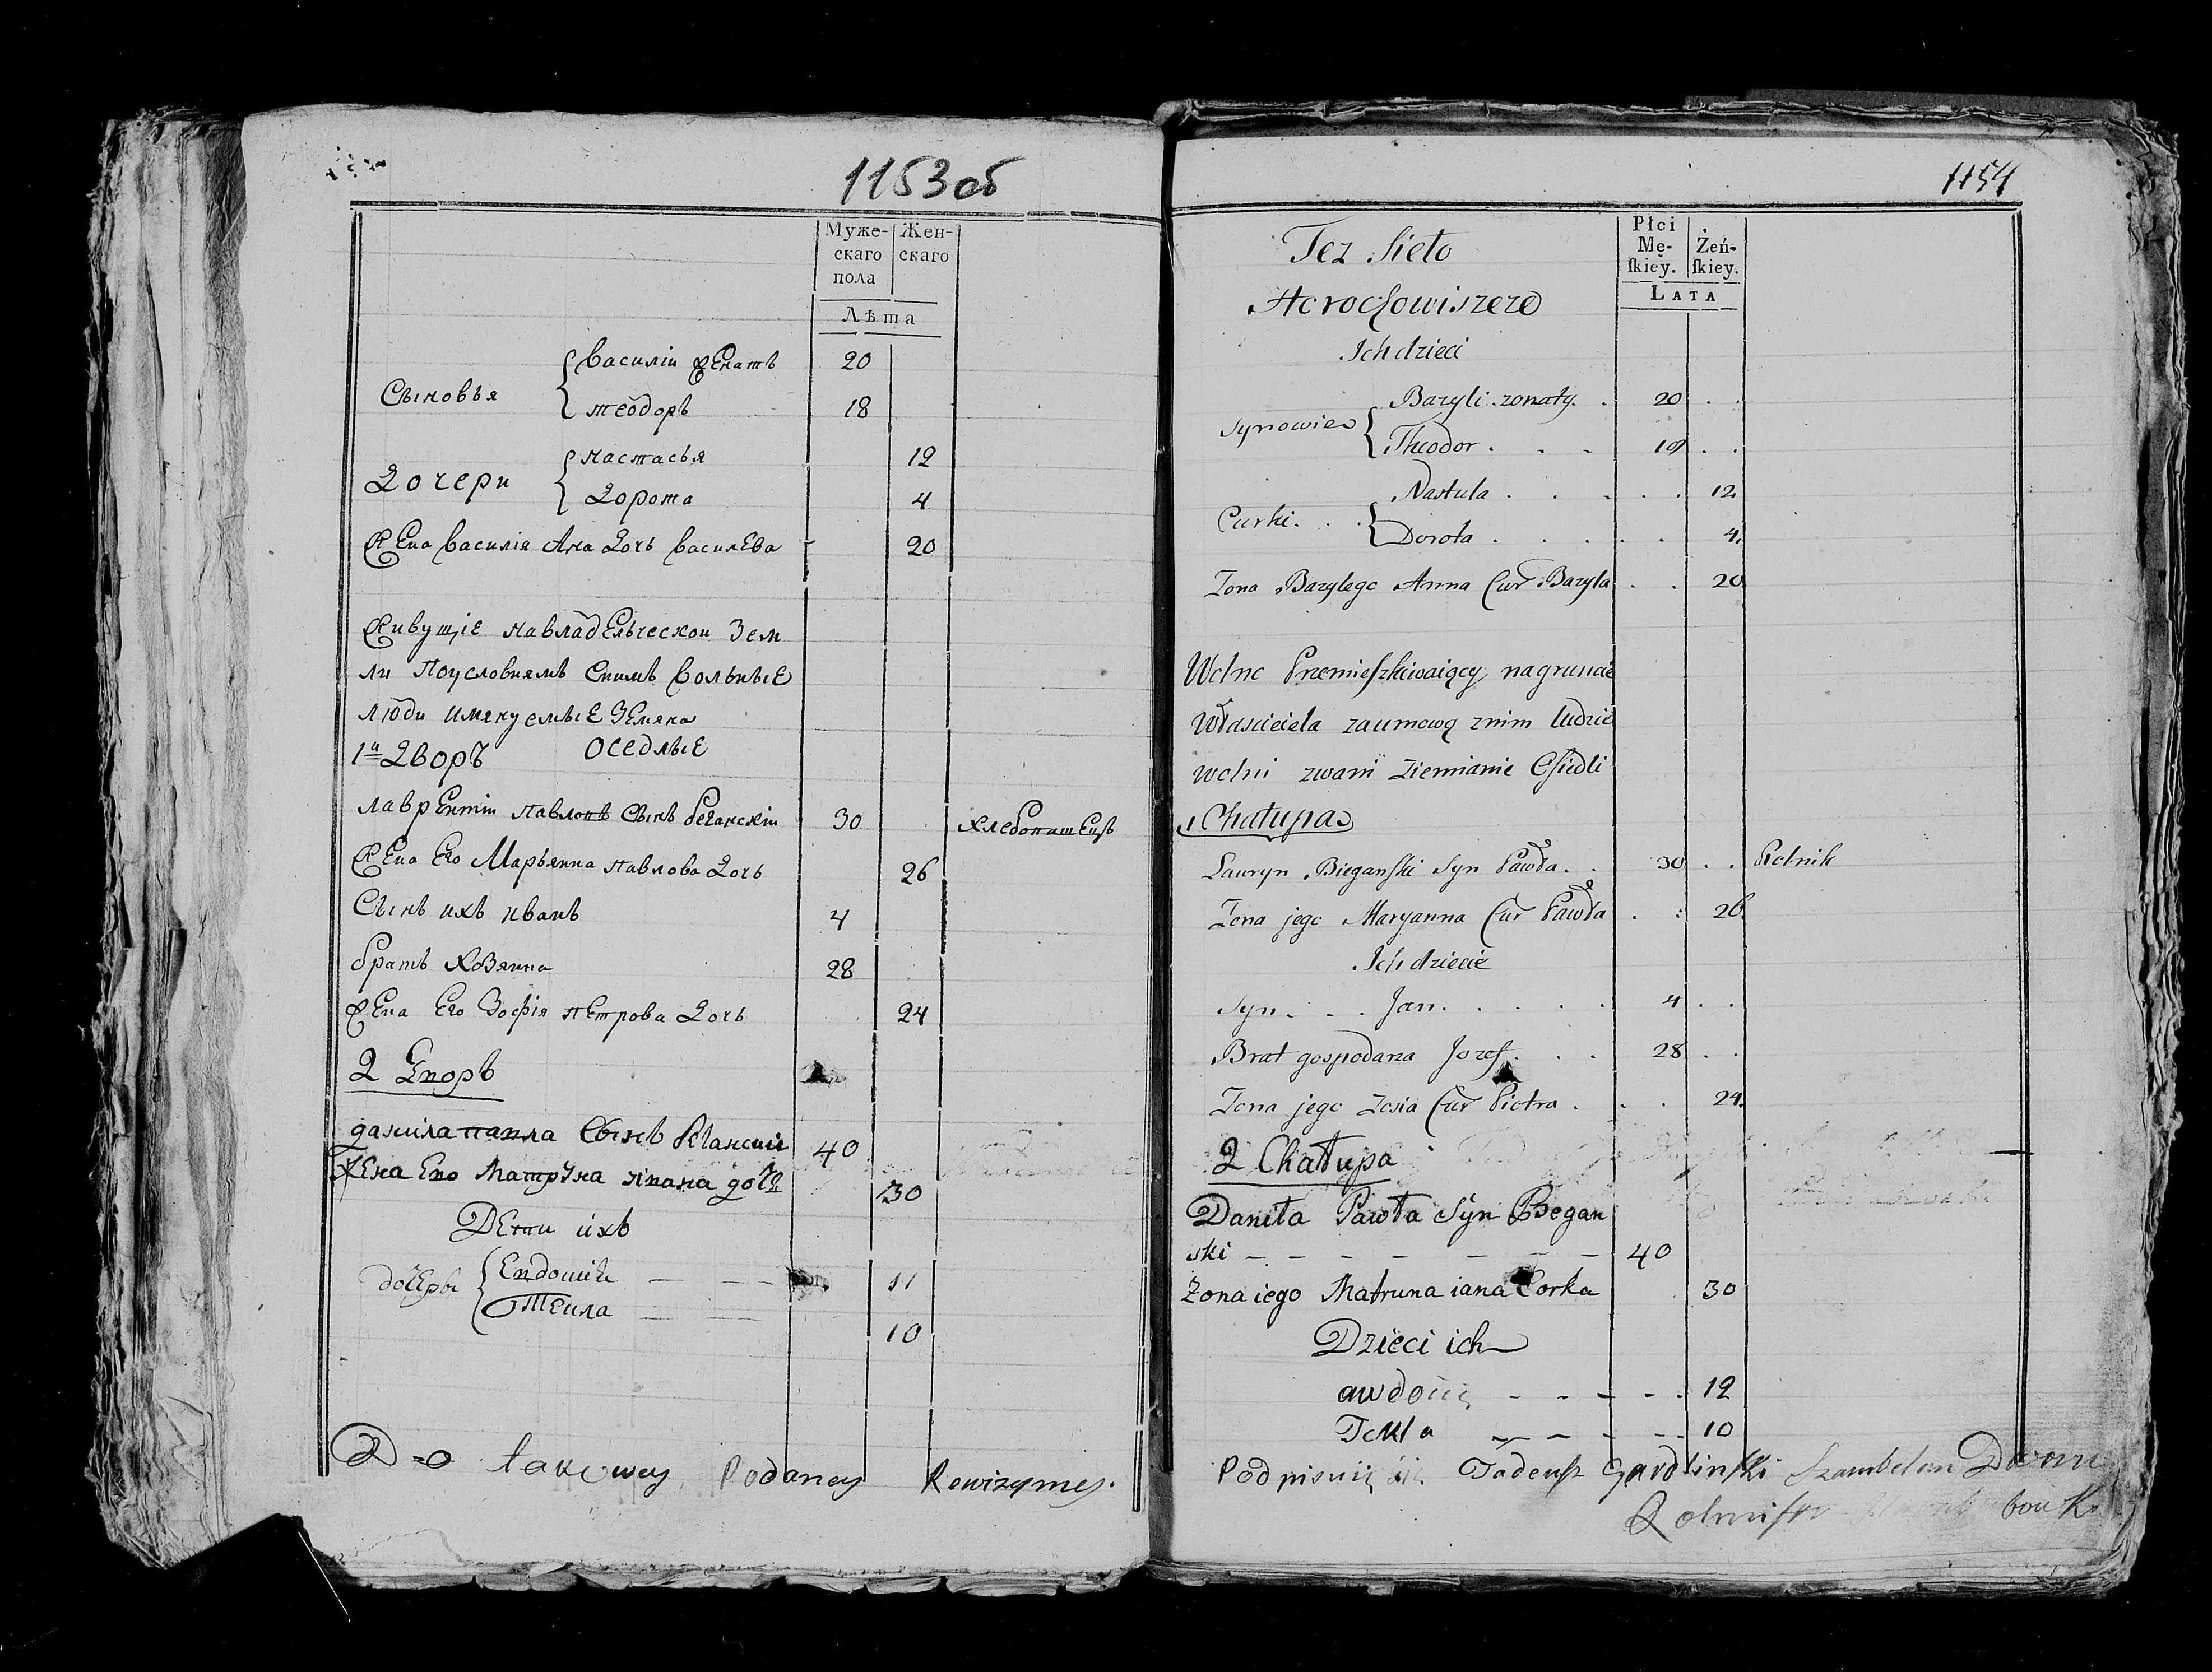 1153об
Муже-
скаго
пола
Жен-
скаго
Лѣта
Сыновья
Василіи женатъ 20
теодоръ 18
Дочери
настасья 12
Дорота 4
жена Василія Ана Дочь Василева 20
живущіе навладельческои Зем
ли Поусловиямъ Снимъ Вольные
люди имянуемые Земяна
1й Дворъ оседлые
лаврентіи павловъ Сынъ беганскіи 30 хлебопашецъ
жена Его Марьянна павлова Дочь 26
Сынъ ихъ иванъ 4
братъ хозяина 28
жена Его Зофія петрова Дочь 24
2 Дворъ
данила павла Сынъ беганский 40
жена Ево Матруна ивана дочъ 30
Дети ихъ
дочеры
Евдоция 11
Текла 10
Do takowey Podaney Rewizymey.
1154
Też Sieło
Horodowiszcze
Płci
Mę-
ſkiey.
Żeń-
ſkiey.
LATA
Ich dzieci
Synowie
Bazyli zonaty 20
Theodor 19
Curki
Nastula 12
Dorota 4
Zona Bazylego Anna Cur Bazyla 20
Wolno Przemieſzkiwaiący nagruncie
Własciciela zaumową znim ludzie
wolni zwani Ziemianie Oſiedli
1 Chałupa
Lauryn Bieganſki Syn Pawła 30 Rolnik
Zona jego Maryanna Cur Pawła 26
Ich dziecie
Syn Jan 4
Brat gospodarza Jozef 28
Zona jego Zosia Cur Piotra 24
2 Chałupa
Daniła Pawła Syn Began
ski 40
Zona iego Matruna iana Corka 30
Dzieci ich
awdocia 12
Tekla 10
Podpisuię się Tadeusz Gardlinſki Szambelan Dworu
Rotmistr